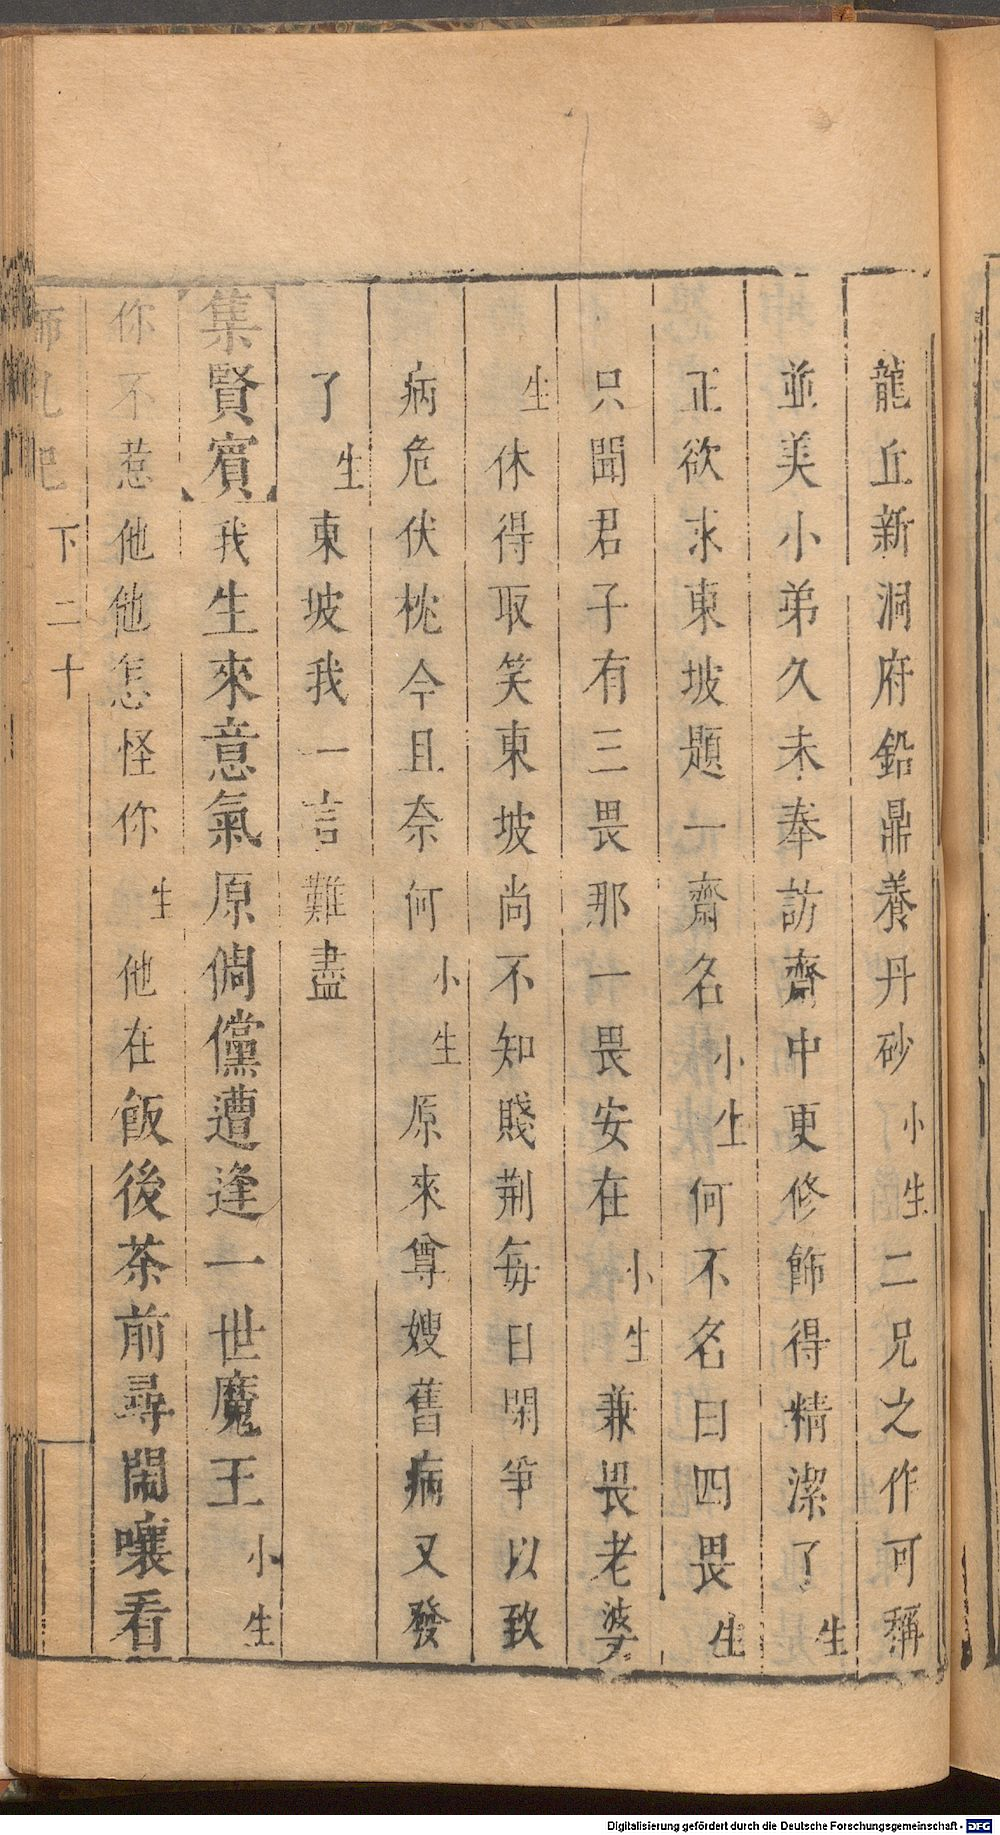 龍丘新洞府鉛鼎養丹砂小生二兄之作可稱
並美小弟久未奉訪齋中更修飾得精潔了生
正欲求東坡題一齋名小生何不名曰四畏生
只聞君子有三畏那一畏安在小生兼畏老婆
生休得取笑東坡尚不知賤荆每日閑爭以致
病危伏枕今且奈何小生原來尊嫂舊病又發
了生東坡我一言難盡
【集賢賓】我生來意氣原倜儻遭逢一世魔王小生
你不惹他他怎怪你生他在飯後茶前尋鬧嚷看
師吼記 下 二十
Digitalisierung gefördert durch die Deutsche Forschungsgemeinschaft - DFG